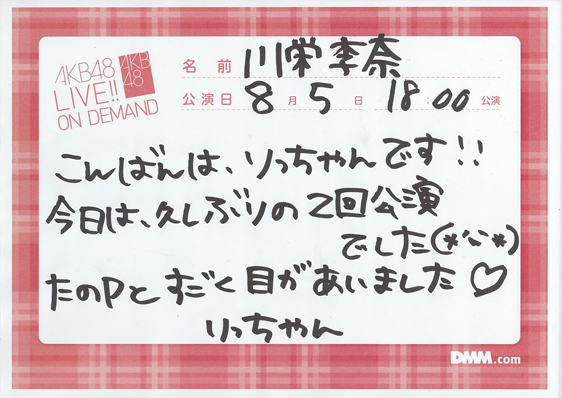 AKB48
LIVE!!
ON DEMAND
AKB
48
名前 川栄李奈
公演日 8月5日 18:00 公演
こんばんは、りっちゃんです!!
今日は、久しぶりの2回公演
でした(*^^*)
たのPとすごく目があいました♡
りっちゃん
DMM.com